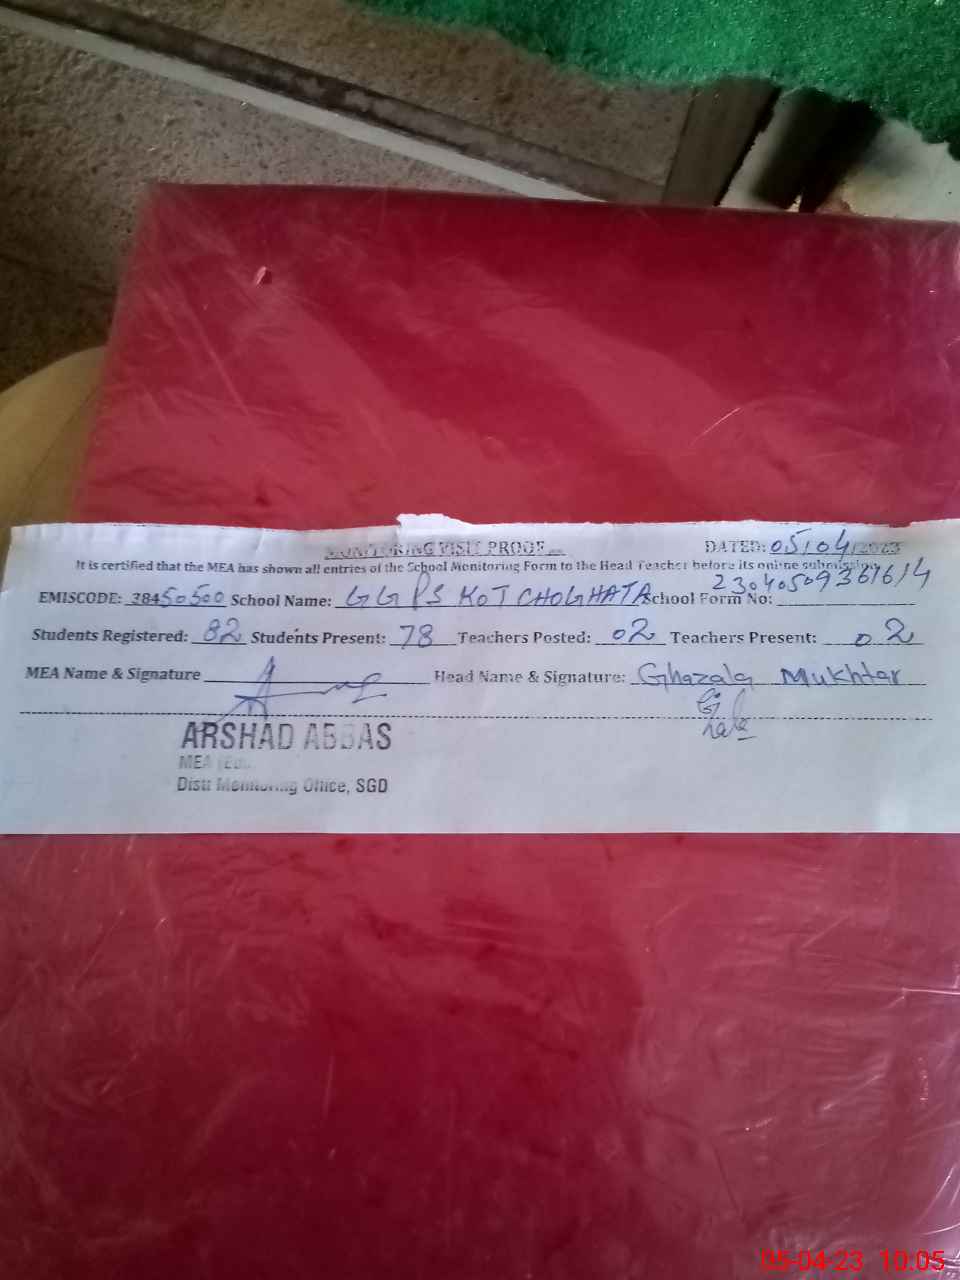 MONITORING VISIT PROOF DATED: 05/04/2023
It is certified that the MEA has shown all entries of the School Monitoring Form to the Head Teacher before its online submission.
23040509361614
EMISCODE: 38450500 School Name: GGPS KOT CHOGHATA School Form No:
Students Registered: 82 Students Present: 78 Teachers Posted: 02 Teachers Present: 02
MEA Name & Signature Head Name & Signature: Ghazala Mukhtar
ARSHAD ABBAS
MEA
Distt Monitoring Office, SGD
05-04-23 10:05